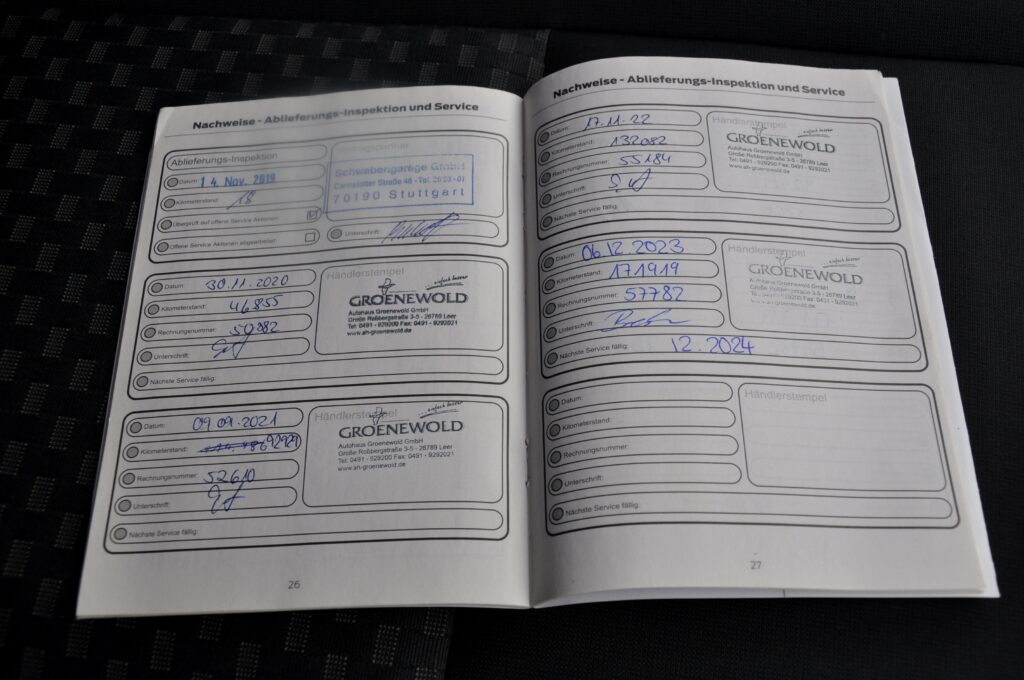 Nachweise - Ablieferungs-Inspektion und Service
Ablieferungs-Inspektion
Datum: 14. Nov. 2019
Kilometerstand: 18
Überprüft auf offene Service Aktionen
Offene Service Aktionen abgearbeitet
Schwabengarage GmbH
70190 Stuttgart
Unterschrift:
Datum: 30.11.2020
Kilometerstand: 46855
Rechnungsnummer:
Unterschrift:
Nächste Service fällig:
Händlerstempel
einfach besser
GROENEWOLD
Autohaus Groenewold GmbH
Große Roßbergstraße 3-5 - 26789 Leer
Tel: 0491 - 929200 Fax: 0491 - 9292021
www.ah-groenewold.de
Datum: 09 09.2021
Kilometerstand: 92929
Rechnungsnummer: 52610
Unterschrift:
Nächste Service fällig:
Händlerstempel
einfach besser
GROENEWOLD
Autohaus Groenewold GmbH
Große Roßbergstraße 3-5 - 26789 Leer
Tel: 0491 - 929200 Fax: 0491 - 9292021
www.ah-groenewold.de
26
Nachweise - Ablieferungs-Inspektion und Service
Datum: 17.11.22
Kilometerstand: 132082
Rechnungsnummer: 55184
Unterschrift:
Nächste Service fällig:
Händlerstempel
einfach besser
GROENEWOLD
Autohaus Groenewold GmbH
Große Roßbergstraße 3-5 - 26789 Leer
Tel: 0491 - 929200 Fax: 0491 - 9292021
www.ah-groenewold.de
Datum: 06.12.2023
Kilometerstand: 171919
Rechnungsnummer: 57782
Unterschrift:
Nächste Service fällig: 12.2024
Händlerstempel
einfach besser
GROENEWOLD
Autohaus Groenewold GmbH
Große Roßbergstraße 3-5 - 26789 Leer
Tel: 0491 - 929200 Fax: 0491 - 9292021
www.ah-groenewold.de
Datum:
Kilometerstand:
Rechnungsnummer:
Unterschrift:
Nächste Service fällig:
Händlerstempel
27